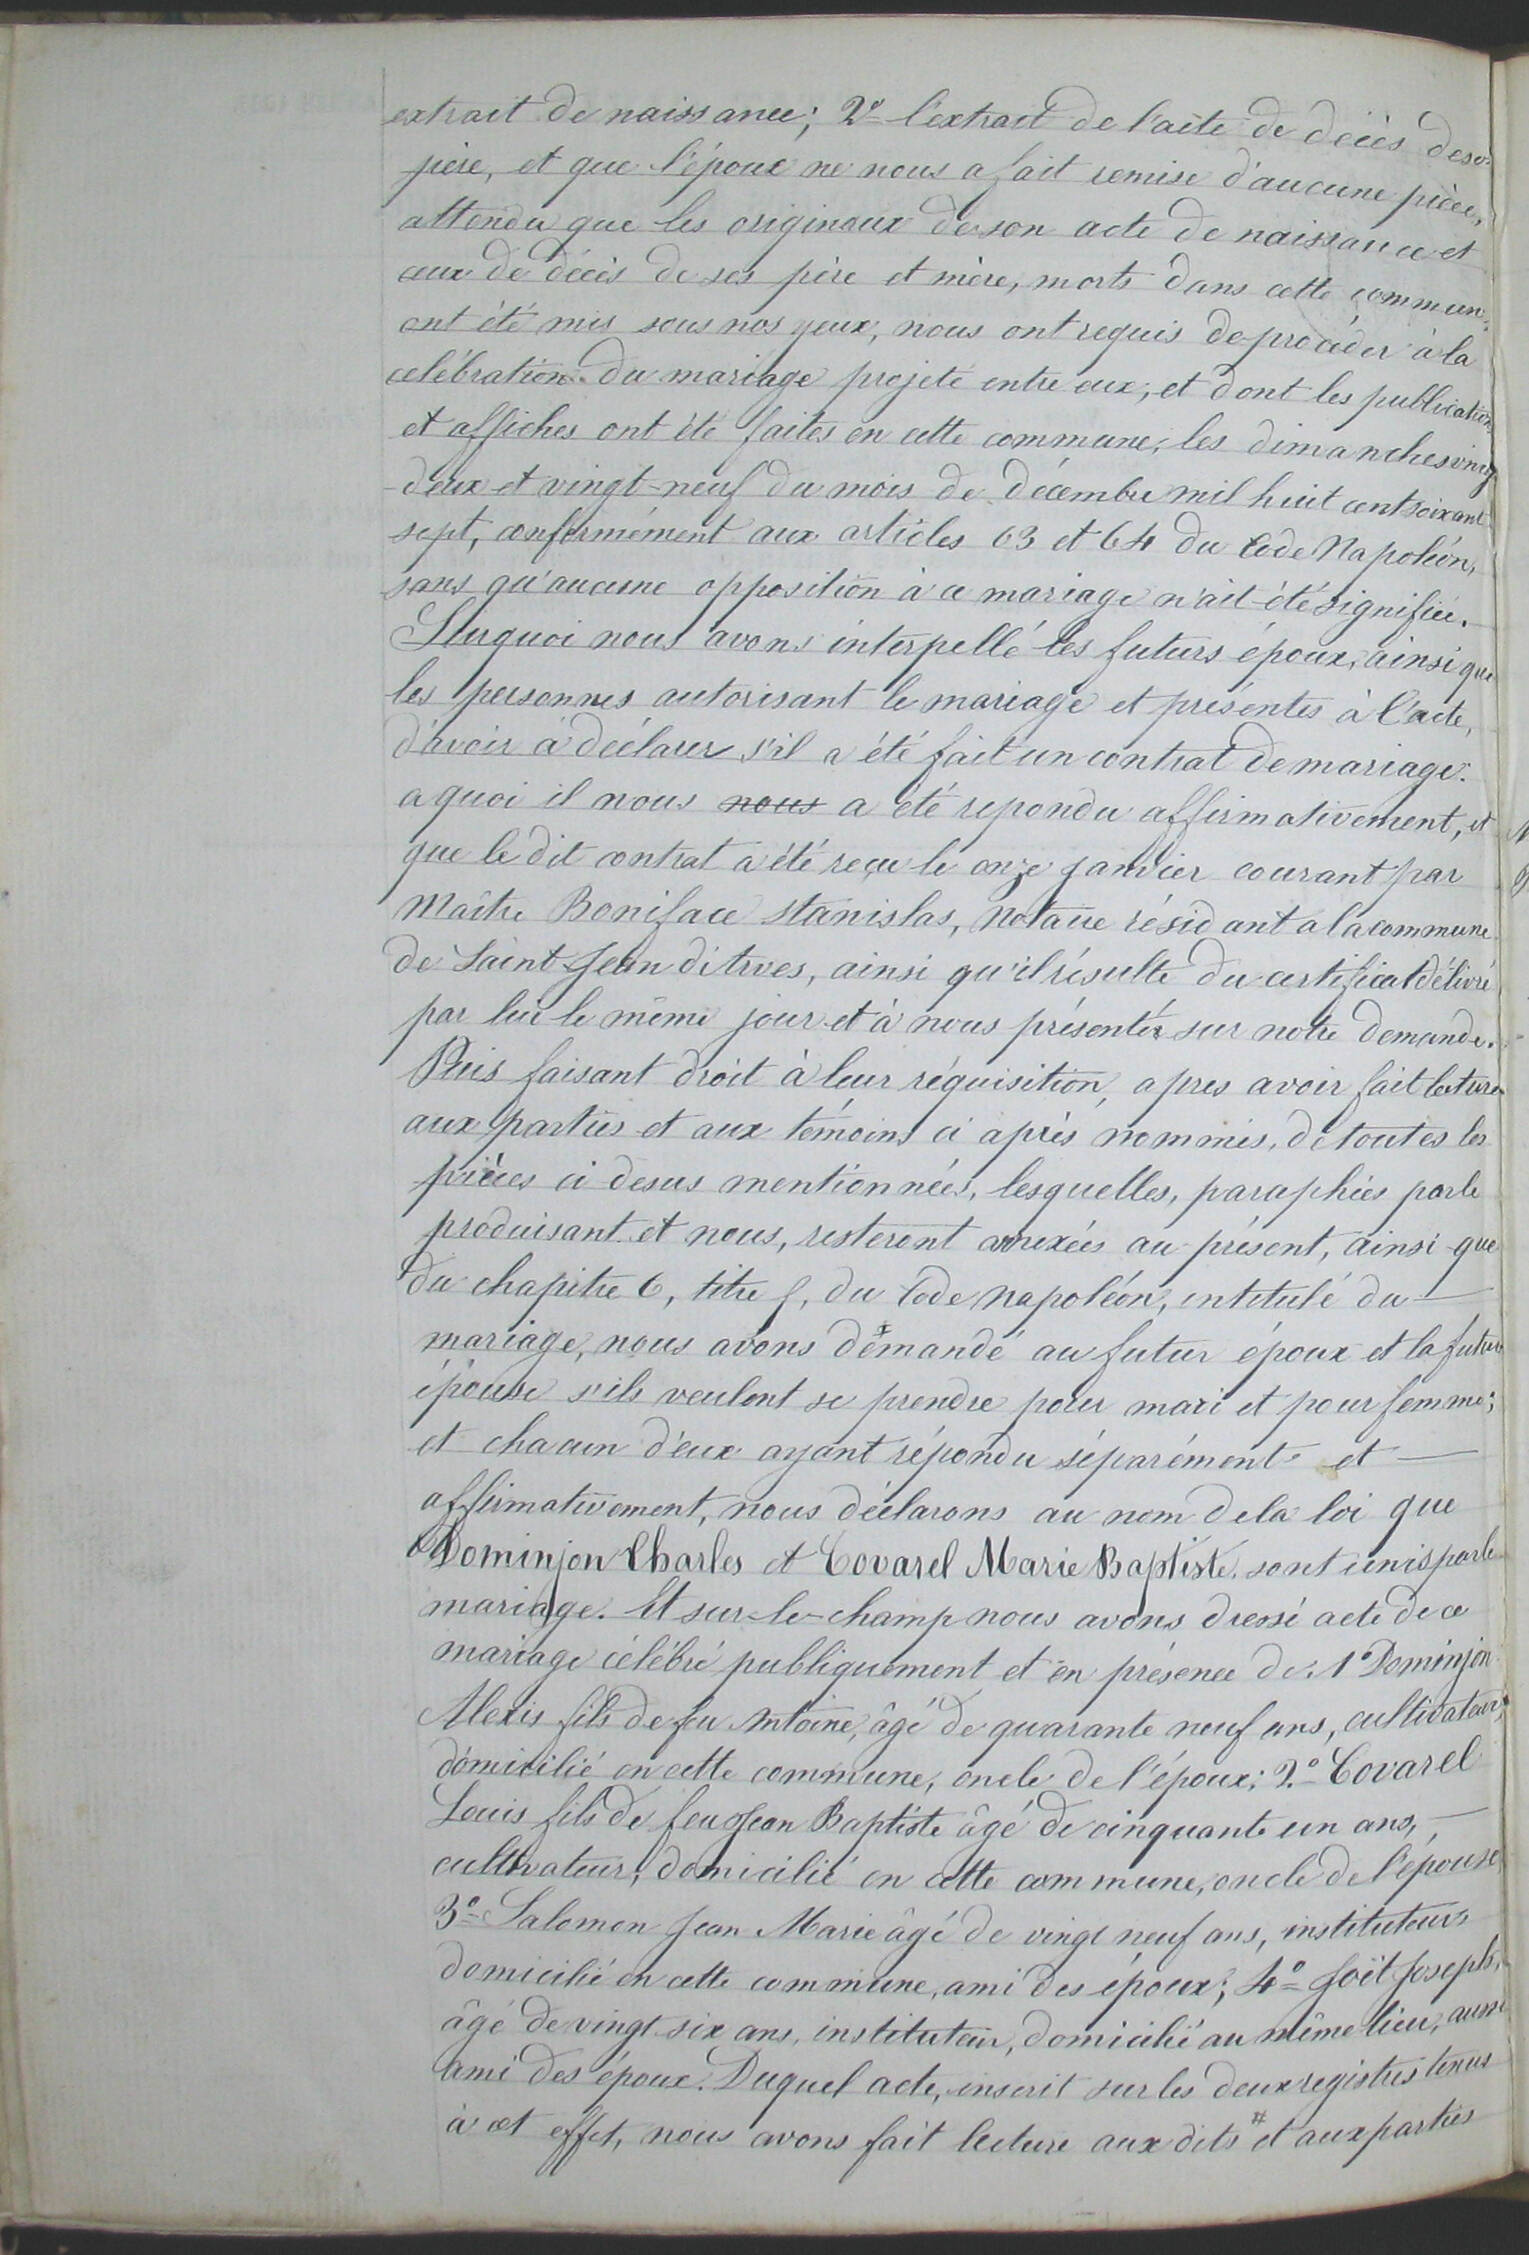 extrait de naissance; 2º l'extrait de l'acte de décès de so
père, et que l'époux ne nous a fait remise d'aucune pièce,
attendu que les originaux de son acte de naissance et
ceux de décès de ses père et mère, morts dans cette commun
ont été mis sous nos yeux, nous ont requis de procéder à la
celébration du mariage projeté entre eux, et dont les publications
et affiches ont été faites en cette commune, les dimanches ving
-deux et vingt-neuf du mois de décembre mil huit cent soixant
sept, conformément aux articles 63 et 64 du Code Napoléon,
sans qu'aucune opposition à ce mariage n'ait été signifiée.
Surquoi nous avons interpellé les futurs époux, ainsi que
les personnes autorisant le mariage et présentes à l'acte,
d'avoir à déclarer s'il a été fait un contrat de mariage:
a quoi il nous nous a été repondu affirmativement, et
que le dit contrat a été reçu le onze janvier courant par
Maître Boniface Stanislas, Notaire résidant a la commune
de Saint Jean d'Arves, ainsi qu'il résulte du certificat délivré
par lui le même jour et à nous présenté sur notre demande.
Puis faisant droit à leur réquisition, apres avoir fait lecture
aux parties et aux témoins ci après nommés, de toutes les
pièces ci desus mentionnées, lesquelles, paraphées par le
produisant et nous, resteront annexées au présent, ainsi que
du chapitre 6, titre 5, du Code Napoléon, intitulé du —
mariage, nous avons demandé au futur époux et la future
épouse s'ils veulent se prendre pour mari et pour femme;
et chacun d'eux ayant répondu séparément et —
affirmativement, nous déclarons au nom de la loi que
Dominjon Charles et Covarel Marie Baptiste, sont unis par le
mariage. Et sur-le-champ nous avons dressé acte de ce
mariage célébré publiquement et en présence de 1º Dominjon
Alexis fils de feu Antoine, âgé de quarante neuf ans, cultivateur,
domicilié en cette commune, oncle de l'époux; 2º Covarel
Louis fils de feu Jean Baptiste âgé de cinquante un ans, —
cultivateur, domicilié en cette commune, oncle de l'épouse
3º Salomon Jean Marie âgé de vingt neuf ans, instituteur,
domicilié en cette commune, ami des époux; 4º Joseph,
âgé de vingt six ans, instituteur, domicilié au même lieu, aussi
ami des époux. Duquel acte, inscrit sur les deux registres tenus
à cet effet, nous avons fait lecture aux dits # et aux parties